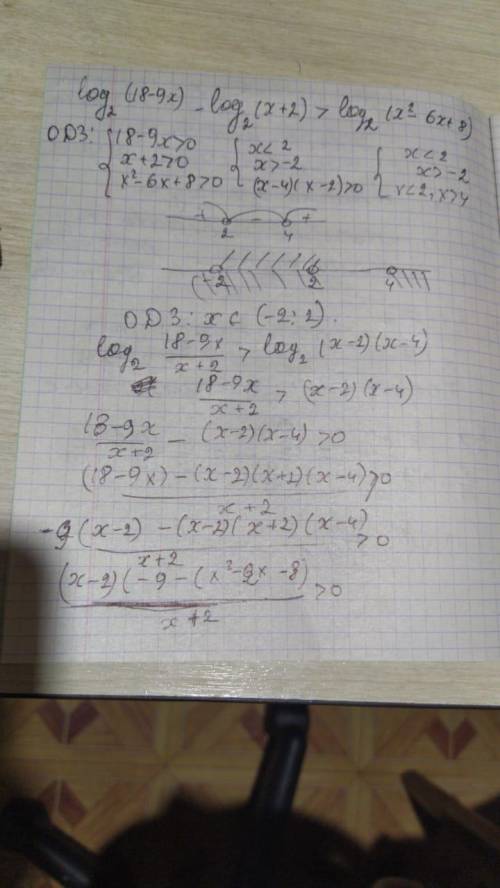 log₂(18-9x) - log₂(x+2) > log₂(x²-6x+8)
ОДЗ: { 18-9x>0 { x<2 { x<2
x+2>0 x>-2 x>-2
x²-6x+8>0 (x-4)(x-2)>0 x<2, x>4
+ - +
2 4
-2 2 4
ОДЗ: x ∈ (-2; 2).
log₂ (18-9x)/(x+2) > log₂ (x-2)(x-4)
(18-9x)/(x+2) > (x-2)(x-4)
(18-9x)/(x+2) - (x-2)(x-4) >0
((18-9x) - (x-2)(x+2)(x-4))/(x+2) >0
(-9(x-2) - (x-2)(x+2)(x-4))/(x+2) >0
((x-2)(-9-(x²-2x-8))/(x+2) >0